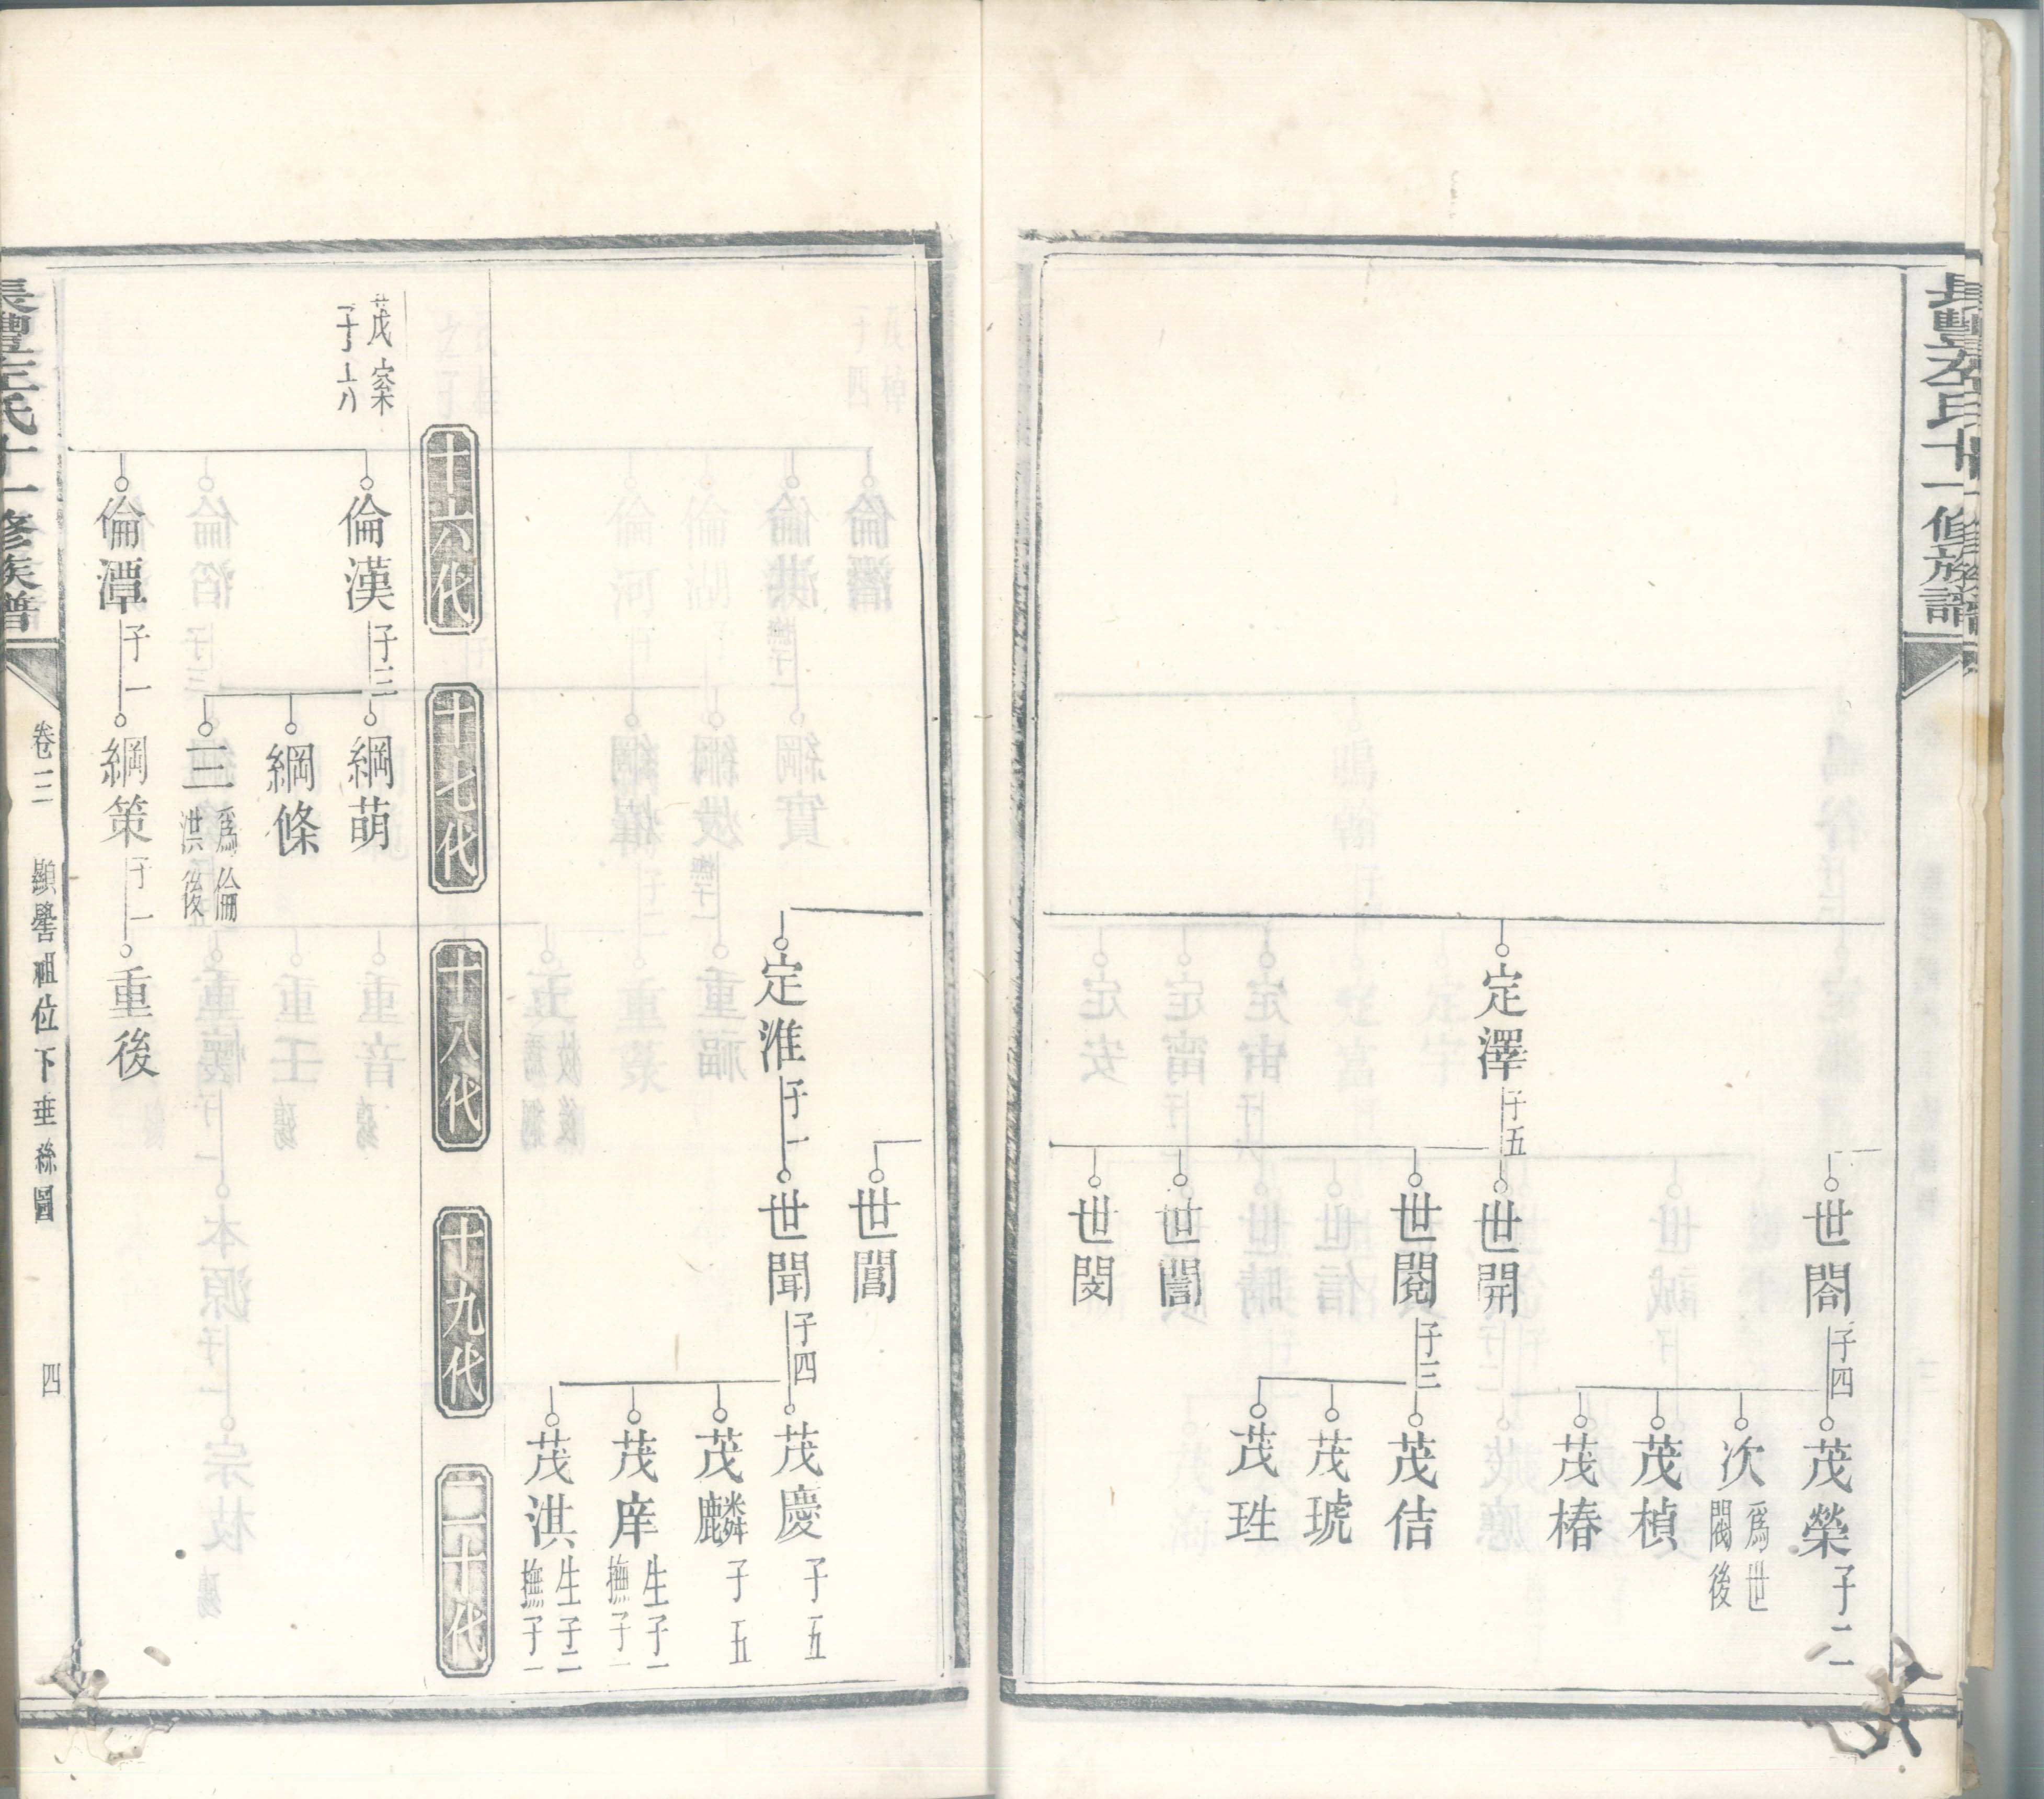 長豐李氏十一修族譜
世閤 子四
茂榮 子二
次 爲世閥後
茂楨
茂椿
定澤 子五
世開
世閱 子三
茂佶
茂琥
茂珄
世誾
世閔
世閶
定淮 子一
世聞 子四
茂慶 子五
茂麟 子五
茂庠 生子一 撫子一
茂淇 生子二 撫子一
十六代
十七代
十八代
十九代
二十代
茂寀 子六
倫漢 子三
綱萌
綱條
三 爲倫洪後
倫潭 子一
綱策 子一
重後
氏十一修族譜
卷三 顯譽祖位下垂絲圖 四